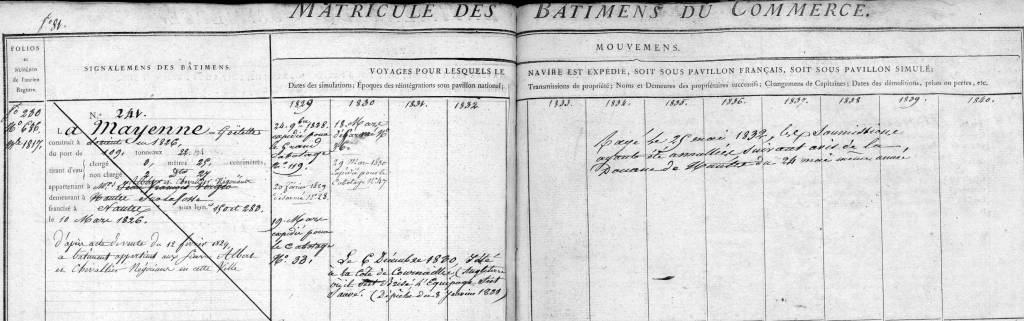 MATRICULE DES BÂTIMENS DU COMMERCE.
FOLIOS
et
NUMÉROS
de l'ancien
Registre.
SIGNALEMENS DES BÂTIMENS.
MOUVEMENS.
VOYAGES POUR LESQUELS LE NAVIRE EST EXPÉDIÉ, SOIT SOUS PAVILLON FRANÇAIS, SOIT SOUS PAVILLON SIMULÉ;
Dates des simulations; Époques des réintégrations sous pavillon national; Transmissions de propriété; Noms et Demeures des propriétaires successifs; Changemens de Capitaines; Dates des démolitions, prises ou pertes, etc.
1829 1830 1831. 1832 1833. 1834. 1835. 1836. 1837. 1838. 1839. 1840.
fo 230
No 686.
1817.
N.° 244.
La Mayenne Goëlette
construit à en 1826.
du port de 109. tonneaux
tirant d'eau chargé mètres 25. centimètres,
non chargé 27
appartenant à Mr.
demeurant à Nantes
francisé à Nantes sous le n.°
le 10 Mars 1826.
D'après acte de vente du 12 février 1829,
ce bâtiment appartient aux sieurs Albert
et Chevallier Négocians en cette Ville
24. 9bre 1828.
expédié pour
le Grand
Cabotage
No 119.
20 février 1829
désarmé No 28.
19 Mars
expédié pour
le Cabotage
No 33.
18 Mars
désarmé No
29 Mars 1830
expédié pour le
Cabotage No 47
Le 6 Décembre 1830, Jetté
à la Côte de Cornouailles (Angleterre
où il s'est brisé, l'Equipage s'est
sauvé. (Dépêche du 8 Janvier 1831)
Rayé le 25 mai 1832, les Soumissions
ayant été annullées suivant avis de la
Douane de Nantes du 24 mai même année